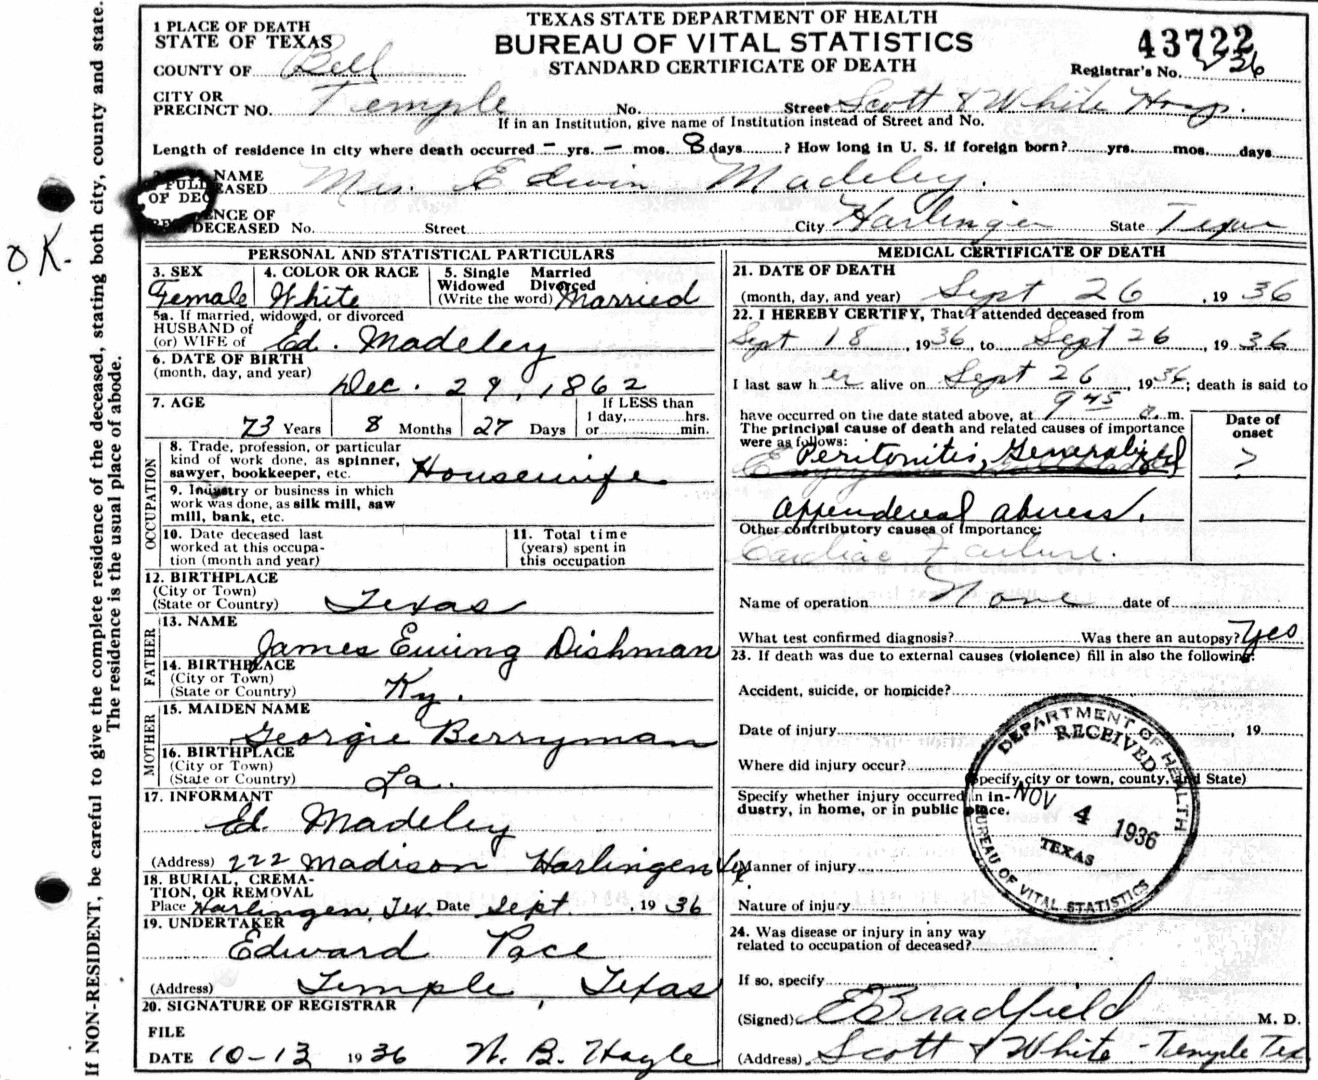 TEXAS STATE DEPARTMENT OF HEALTH
BUREAU OF VITAL STATISTICS
STANDARD CERTIFICATE OF DEATH
43722
Registrar's No. 36
1 PLACE OF DEATH
STATE OF TEXAS
COUNTY OF Bell
CITY OR
PRECINCT NO. Temple No. Street Scott & White Hosp.
If in an Institution, give name of Institution instead of Street and No.
Length of residence in city where death occurred - yrs. - mos. 8 days ? How long in U. S. if foreign born? yrs. mos. days.
FULL NAME
OF DECEASED Mrs. Edwin Madeley.
RESIDENCE OF
DECEASED No. Street City Harlingen State Texas
PERSONAL AND STATISTICAL PARTICULARS
3. SEX 4. COLOR OR RACE 5. Single Married
Widowed Divorced
Female White (Write the word) Married
5a. If married, widowed, or divorced
HUSBAND of
(or) WIFE of Ed. Madeley
6. DATE OF BIRTH
(month, day, and year) Dec. 29, 1862
7. AGE If LESS than
1 day, hrs.
73 Years 8 Months 27 Days or min.
OCCUPATION
8. Trade, profession, or particular
kind of work done, as spinner,
sawyer, bookkeeper, etc. Housewife
9. Industry or business in which
work was done, as silk mill, saw
mill, bank, etc.
10. Date deceased last
worked at this occupa-
tion (month and year)
11. Total time
(years) spent in
this occupation
12. BIRTHPLACE
(City or Town)
(State or Country) Texas
FATHER
13. NAME
James Ewing Dishman
14. BIRTHPLACE
(City or Town)
(State or Country) Ky.
MOTHER
15. MAIDEN NAME
Georgie Berryman
16. BIRTHPLACE
(City or Town)
(State or Country) La.
17. INFORMANT
Ed. Madeley
(Address) 222 Madison Harlingen Tex.
18. BURIAL, CREMA-
TION, OR REMOVAL
Place Harlingen, Tex. Date Sept. , 19 36
19. UNDERTAKER
Edward Pace
(Address) Temple, Texas
20. SIGNATURE OF REGISTRAR
FILE
DATE 10-13 19 36
MEDICAL CERTIFICATE OF DEATH
21. DATE OF DEATH
(month, day, and year) Sept 26 , 19 36
22. I HEREBY CERTIFY, That I attended deceased from
Sept 18 , 1936, to Sept 26 , 19 36
I last saw her alive on Sept 26 , 1936; death is said to
have occurred on the date stated above, at 9 45 a. m.
The principal cause of death and related causes of importance
were as follows:
Date of
onset
Peritonitis, Generalized
?
appendiceal abscess.
Other contributory causes of importance:
Cardiac Failure.
Name of operation None date of
What test confirmed diagnosis? Was there an autopsy? Yes
23. If death was due to external causes (violence) fill in also the following:
Accident, suicide, or homicide?
Date of injury 19
Where did injury occur?
(Specify city or town, county, and State)
Specify whether injury occurred in in-
dustry, in home, or in public place.
Manner of injury
Nature of injury
24. Was disease or injury in any way
related to occupation of deceased?
If so, specify
(Signed) E Bradfield M. D.
(Address) Scott & White - Temple Tex
DEPARTMENT OF HEALTH
RECEIVED
NOV 4 1936
TEXAS
BUREAU OF VITAL STATISTICS
If NON-RESIDENT, be careful to give the complete residence of the deceased, stating both city, county and state.
The residence is the usual place of abode.
O.K.